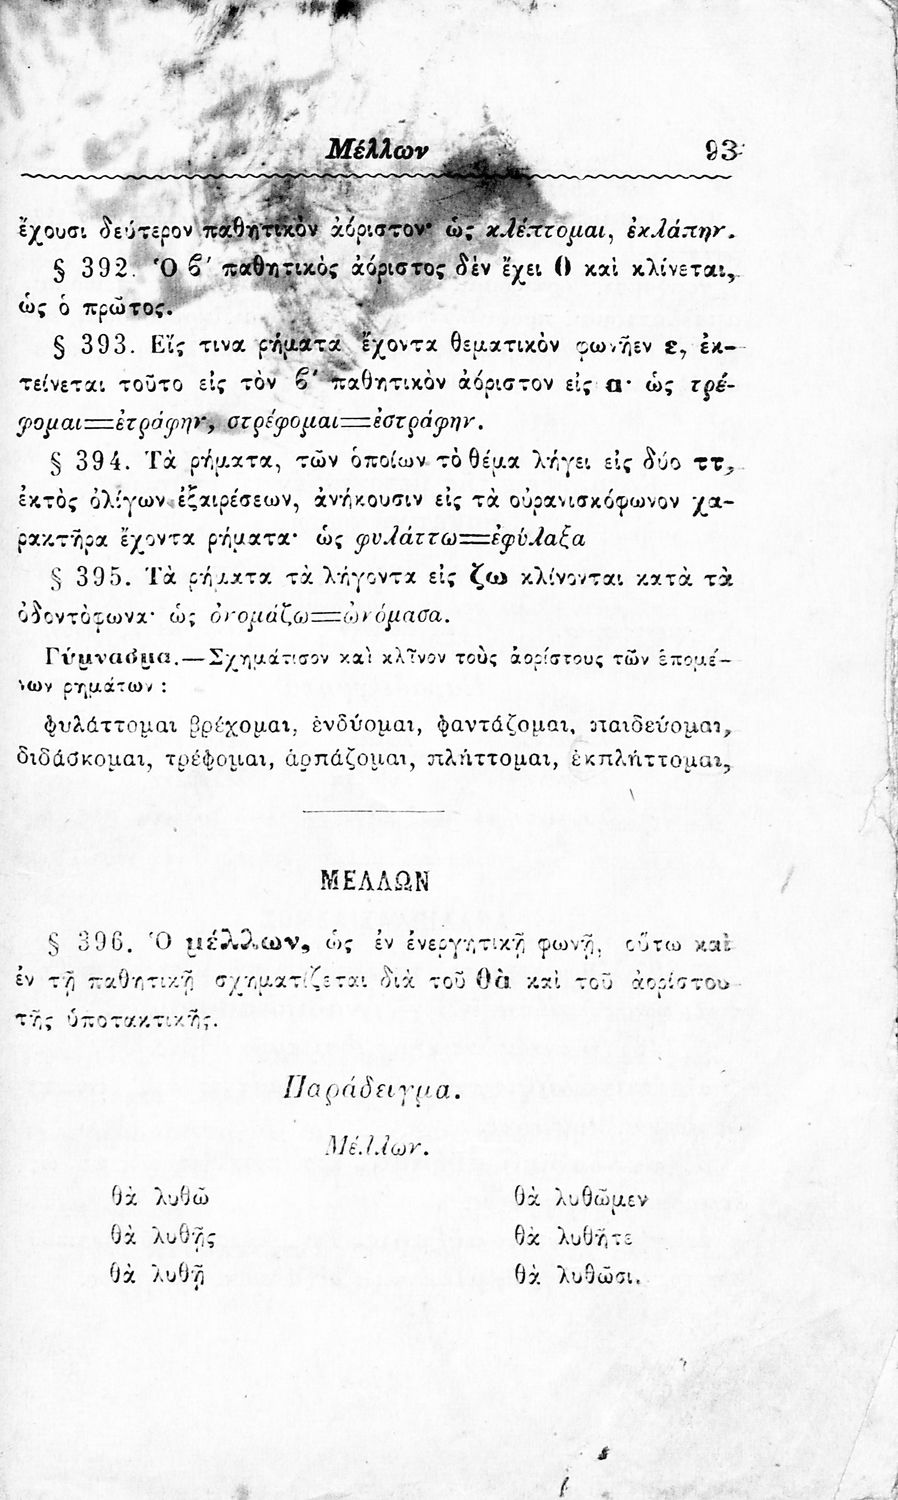 Μέλλων 93
ἔχουσι δεύτερον παθητικὸν ἀόριστον· ὡς κλέπτομαι, ἐκλάπην.
§ 392. Ὁ β′ παθητικὸς ἀόριστος δὲν ἔχει θ καὶ κλίνεται,
ὡς ὁ πρῶτος.
§ 393. Εἴς τινα ρήματα ἔχοντα θεματικὸν φωνῆεν ε, ἐκ-
τείνεται τοῦτο εἰς τὸν β′ παθητικὸν ἀόριστον εἰς α· ὡς τρέ-
φομαι=ἐτράφην, στρέφομαι=ἐστράφην.
§ 394. Τὰ ρήματα, τῶν ὁποίων τὸ θέμα λήγει εἰς δύο ττ,
ἐκτὸς ὀλίγων ἐξαιρέσεων, ἀνήκουσιν εἰς τὰ οὐρανισκόφωνον χα-
ρακτῆρα ἔχοντα ρήματα· ὡς φυλάττω=ἐφύλαξα
§ 395. Τὰ ρήματα τὰ λήγοντα εἰς ζω κλίνονται κατὰ τὰ
ὀδοντόφωνα· ὡς ὀνομάζω=ὠνόμασα.
Γύμνασμα.—Σχημάτισον καὶ κλῖνον τοὺς ἀορίστους τῶν ἑπομέ-
νων ρημάτων :
φυλάττομαι βρέχομαι, ἐνδύομαι, φαντάζομαι, παιδεύομαι,
διδάσκομαι, τρέφομαι, ἁρπάζομαι, πλήττομαι, ἐκπλήττομαι,
ΜΕΛΛΩΝ
§ 396. Ὁ μέλλων, ὡς ἐν ἐνεργητικῇ φωνῇ, οὕτω καὶ
ἐν τῇ παθητικῇ σχηματίζεται διὰ τοῦ θὰ καὶ τοῦ ἀορίστου
τῆς ὑποτακτικῆς.
Παράδειγμα.
Μέλλων.
θὰ λυθῶ θὰ λυθῶμεν
θὰ λυθῇς θὰ λυθῆτε
θὰ λυθῇ θὰ λυθῶσι.